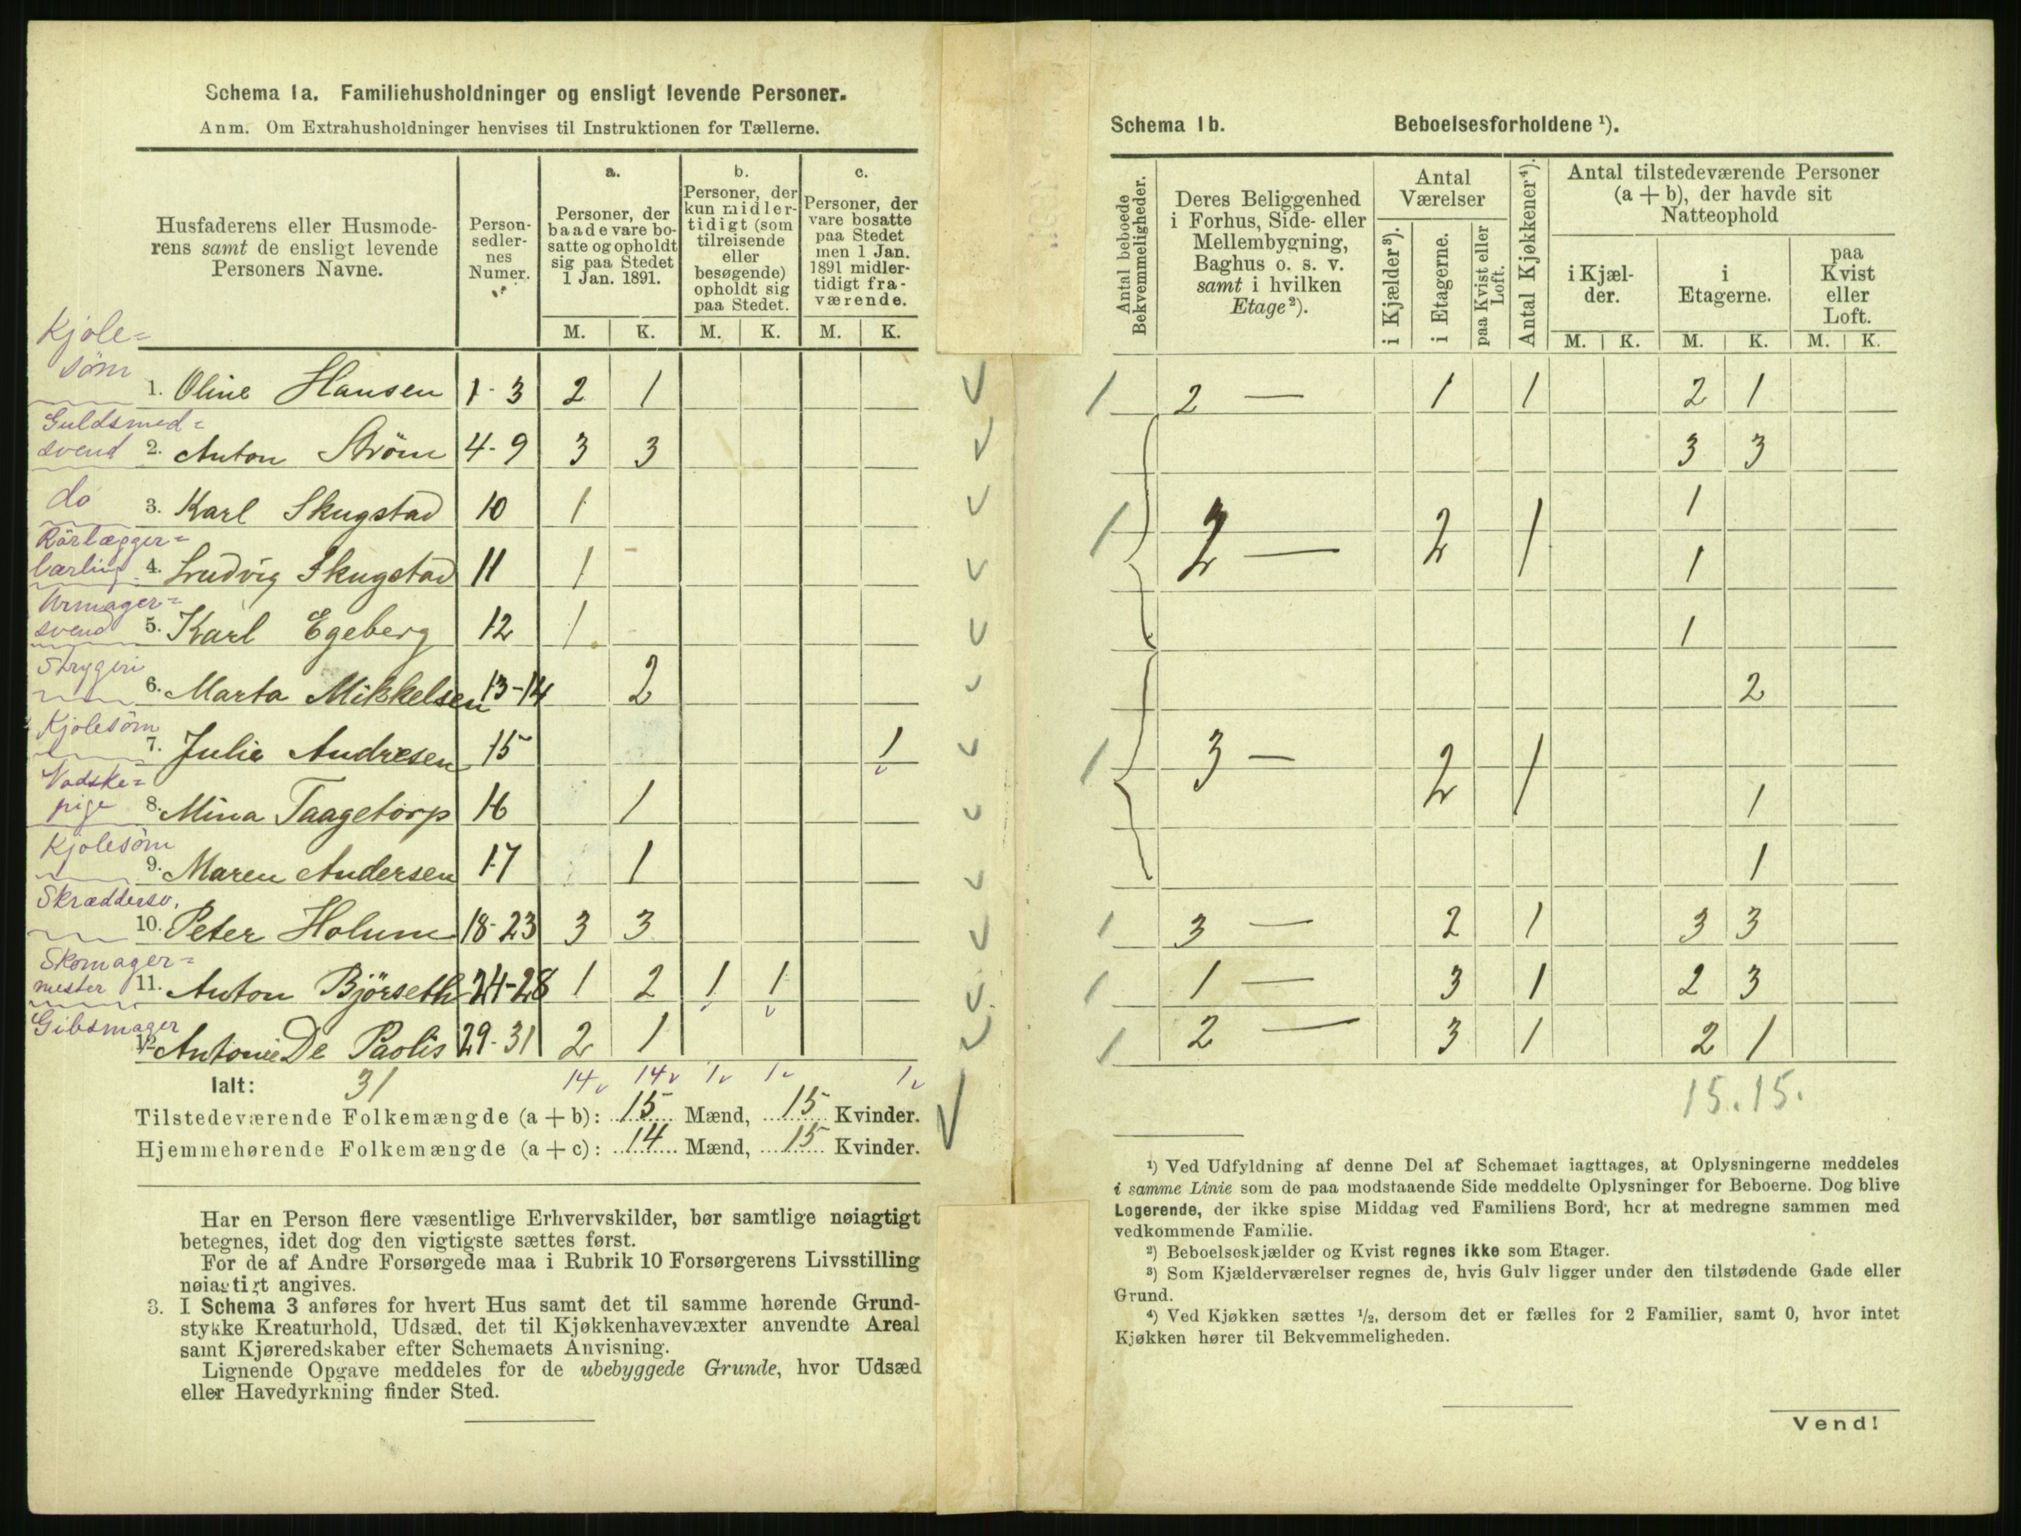 Schema 1a. Familiehusholdninger og ensligt levende Personer.
Anm. Om Extrahusholdninger henvises til Instruktionen for Tællerne.
Husfaderens eller Husmoderens samt de ensligt levende Personers Navne.
Personsedlernes Numer.
a. Personer, der baade vare bosatte og opholdt sig paa Stedet 1 Jan. 1891.
b. Personer, der kun midlertidigt (som tilreisende eller besøgende) opholdt sig paa Stedet.
c. Personer, der vare bosatte paa Stedet men 1 Jan. 1891 midlertidigt fraværende.
M. K. M. K. M. K.
Kjolesöm 1. Oline Hansen 1-3 2 1
Guldsmed=svend 2. Anton Ström 4-9 3 3
do 3. Karl Skugstad 10 1
Rörlægger=lærling 4. Ludvig Skugstad 11 1
Urmager=svend 5. Karl Egeberg 12 1
Strygeri 6. Marta Mikkelsen 13-14 2
Kjolesöm 7. Julie Andresen 15 1
Vadske=pige 8. Mina Taagetorp 16 1
Kjolesöm 9. Maren Andersen 17 1
Skræddersv. 10. Peter Holum 18-23 3 3
Skomager=mester 11. Anton Björseth 24-28 1 2 1 1
Gibsmager 12 Antonie De Paolis 29-31 2 1
Ialt: 31 14 14 1 1 1
Tilstedeværende Folkemængde (a + b): 15 Mænd, 15 Kvinder.
Hjemmehørende Folkemængde (a + c): 14 Mænd, 15 Kvinder.
Har en Person flere væsentlige Erhvervskilder, bør samtlige nøiagtigt
betegnes, idet dog den vigtigste sættes først.
For de af Andre Forsørgede maa i Rubrik 10 Forsørgerens Livsstilling
nøiagtigt angives.
3. I Schema 3 anføres for hvert Hus samt det til samme hørende Grund-
stykke Kreaturhold, Udsæd, det til Kjøkkenhavevæxter anvendte Areal
samt Kjøreredskaber efter Schemaets Anvisning.
Lignende Opgave meddeles for de ubebyggede Grunde, hvor Udsæd
eller Havedyrkning finder Sted.
Schema 1b. Beboelsesforholdene ¹).
Antal beboede Bekvemmeligheder.
Deres Beliggenhed i Forhus, Side- eller Mellembygning, Baghus o. s. v. samt i hvilken Etage²).
Antal Værelser
i Kjælder³).
i Etagerne.
paa Kvist eller Loft.
Antal Kjøkkener⁴).
Antal tilstedeværende Personer (a + b), der havde sit Natteophold
i Kjælder.
i Etagerne.
paa Kvist eller Loft.
M. K. M. K. M. K.
1 2 — 1 1 2 1
3 3
1 2 — 2 1 1
1
1
2
1 3 — 2 1
1
1
1 3 — 2 1 3 3
1 1 — 3 1 2 3
1 2 — 3 1 2 1
15. 15.
¹) Ved Udfyldning af denne Del af Schemaet iagttages, at Oplysningerne meddeles
i samme Linie som de paa modstaaende Side meddelte Oplysninger for Beboerne. Dog blive
Logerende, der ikke spise Middag ved Familiens Bord, her at medregne sammen med
vedkommende Familie.
²) Beboelseskjælder og Kvist regnes ikke som Etager.
³) Som Kjælderværelser regnes de, hvis Gulv ligger under den tilstødende Gade eller
Grund.
⁴) Ved Kjøkken sættes ¹/₂, dersom det er fælles for 2 Familier, samt 0, hvor intet
Kjøkken hører til Bekvemmeligheden.
Vend!